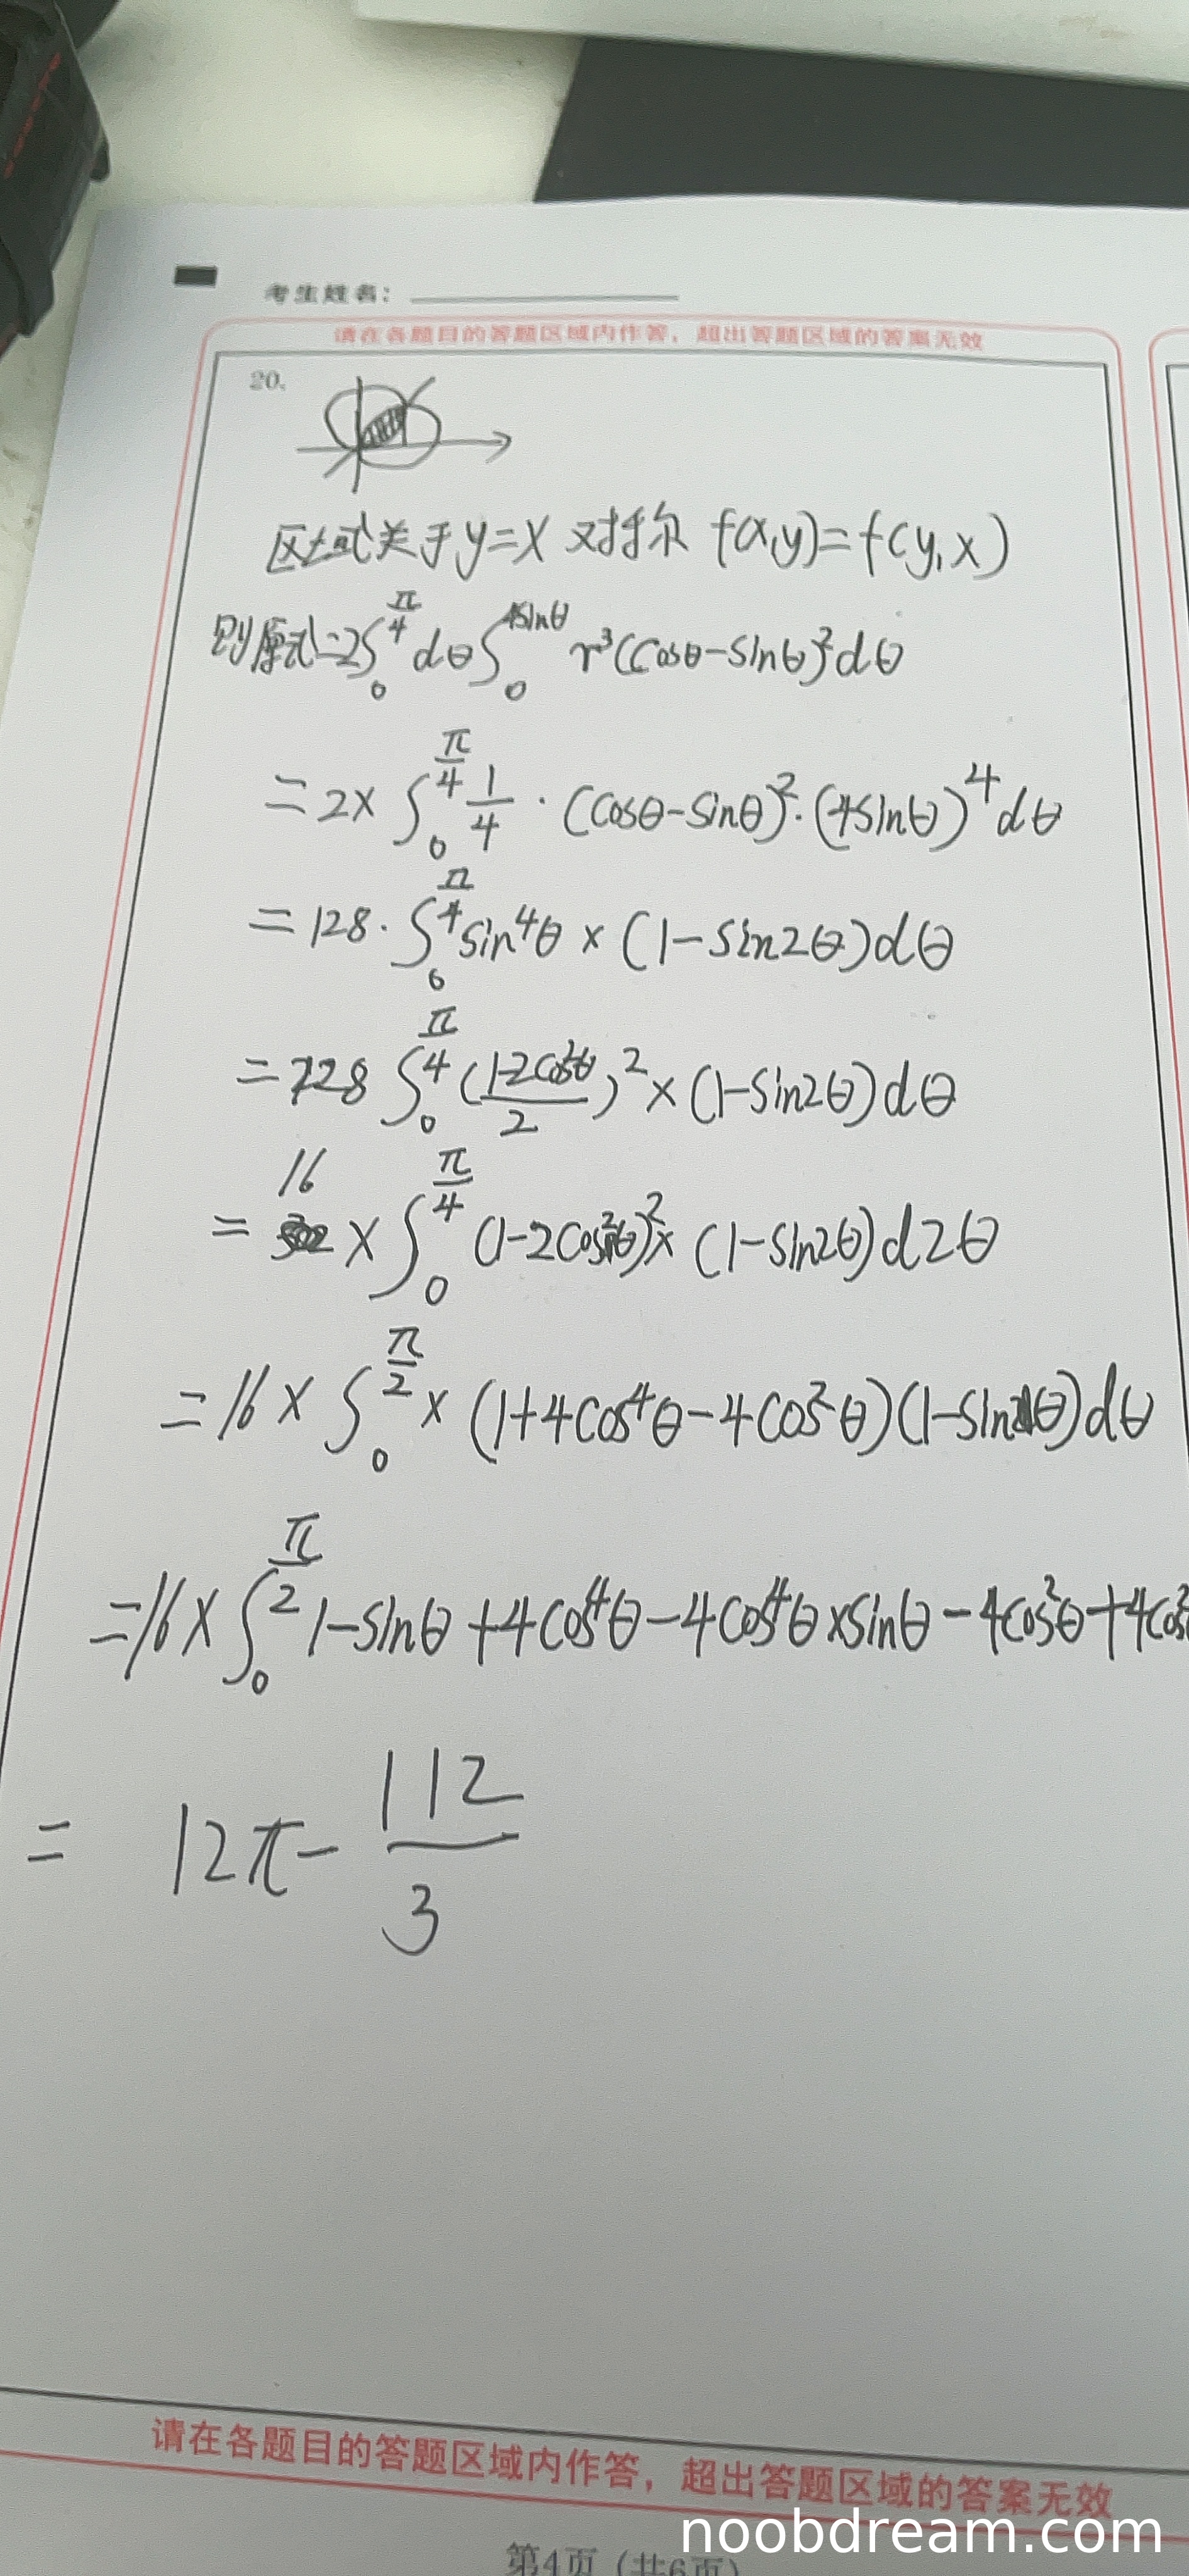 考生姓名：
请在各题目的答题区域内作答，超出答题区域的答案无效
20.
区域关于y=x 对称 f(x,y)=f(y,x)
则原式=2∫₀^(π/4) dθ ∫₀^(4sinθ) r³(cosθ-sinθ)²dθ
=2×∫₀^(π/4) 1/4·(cosθ-sinθ)²·(4sinθ)⁴dθ
=128·∫₀^(π/4) sin⁴θ×(1-sin2θ)dθ
=128∫₀^(π/4) ((1-2cos²θ)/2)²×(1-sin2θ)dθ
=16×∫₀^(π/4) (1-2cos²θ)²×(1-sin2θ)d2θ
=16×∫₀^(π/2)×(1+4cos⁴θ-4cos²θ)(1-sinθ)dθ
=16×∫₀^(π/2) 1-sinθ+4cos⁴θ-4cos⁴θ×sinθ-4cos²θ+4cos²
= 12π-112/3
请在各题目的答题区域内作答，超出答题区域的答案无效
第4页（共6页）
noobdream.com